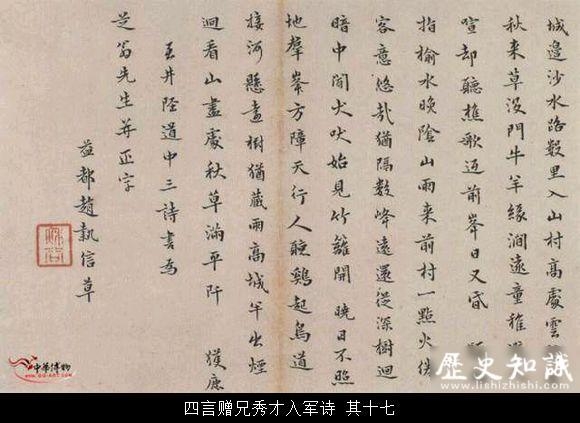 城邊沙水路數里入山村高處雲
秋来草沒門牛羊緣澗遠童稚
喧却聽樵歌近前峯日又昏
指榆水晚陰山雨来前村一點火
客意悠哉猶隔數峰遠還從深樹迴
暗中聞犬吠始見竹籬開 曉日不照
地羣峯方障天行人聽鷄起鳥道
接河懸畫樹猶藏雨高城半出煙
迴看山盡處秋草滿平阡 獲鹿
至井陘道中三詩書為
芝翁先生并正字
益都趙執信草
中華博物
歷史知識
www.lishizhishi.com
四言赠兄秀才入军诗 其十七